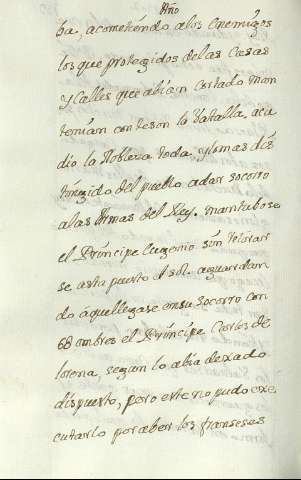 Año
ba, acometiendo a los Enemigos
los que protegidos de las Casas
y Calles que abian Cortado man
tenian con teson la Batalla, acu
dio la Nobleza toda, y lo mas dis
tinguido del pueblo a dar socorro
a las Armas del Rey. mantubose
el Príncipe Eugenio sin retirar
se asta puesto el sol. aguardan
do a que llegase en su Socorro con
68 ombres el Príncipe Carlos de
lorena, segun lo abia dexado
dispuesto, pero este no pudo exe
cutarlo por aber los franseses